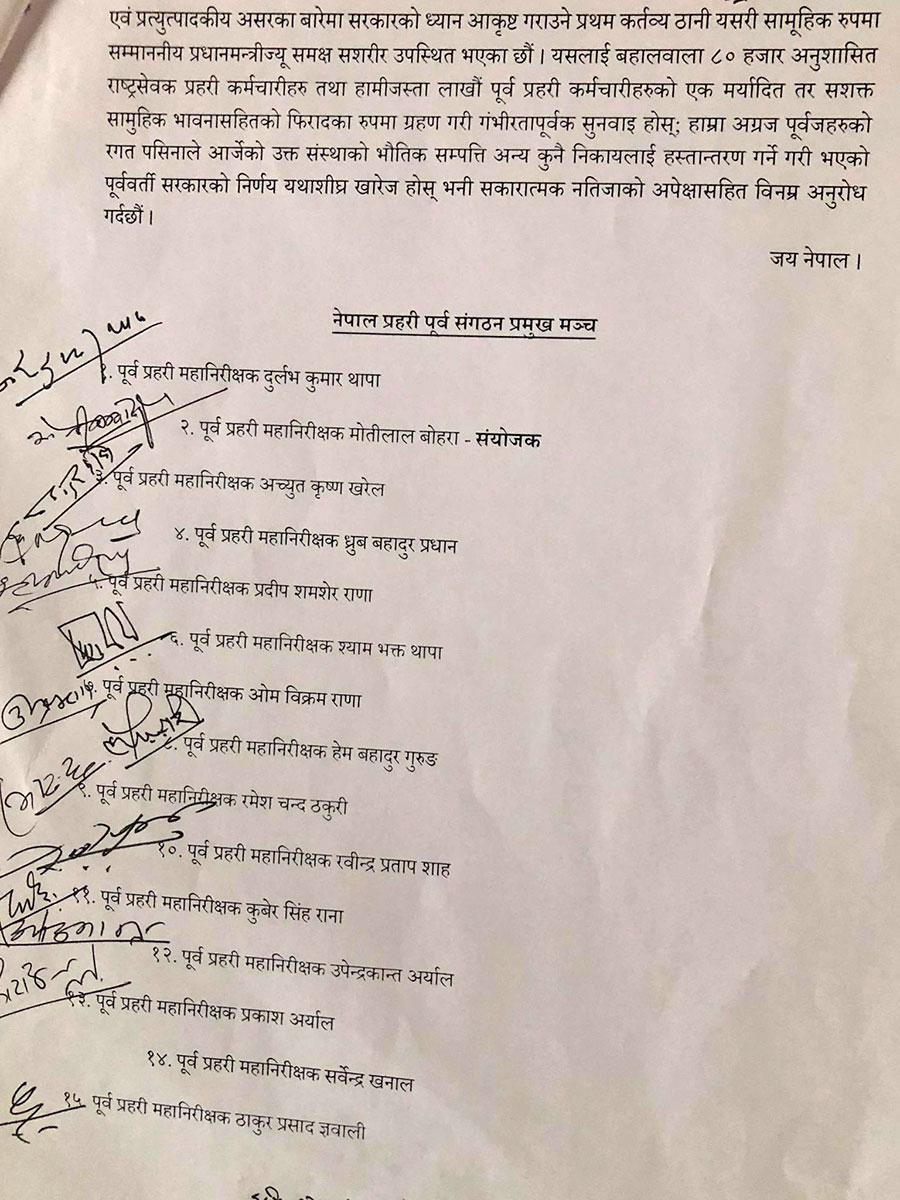 एवं प्रत्युत्पादकीय असरका बारेमा सरकारको ध्यान आकृष्ट गराउने प्रथम कर्तव्य ठानी यसरी सामूहिक रुपमा
सम्माननीय प्रधानमन्त्रीज्यू समक्ष सशरीर उपस्थित भएका छौं । यसलाई बहालवाला ८० हजार अनुशासित
राष्ट्रसेवक प्रहरी कर्मचारीहरु तथा हामीजस्ता लाखौं पूर्व प्रहरी कर्मचारीहरुको एक मर्यादित तर सशक्त
सामुहिक भावनासहितको फिरादका रुपमा ग्रहण गरी गंभीरतापूर्वक सुनवाइ होस्; हाम्रा अग्रज पूर्वजहरुको
रगत पसिनाले आर्जेको उक्त संस्थाको भौतिक सम्पत्ति अन्य कुनै निकायलाई हस्तान्तरण गर्ने गरी भएको
पूर्ववर्ती सरकारको निर्णय यथाशीघ्र खारेज होस् भनी सकारात्मक नतिजाको अपेक्षासहित विनम्र अनुरोध
गर्दछौं ।
जय नेपाल ।
नेपाल प्रहरी पूर्व संगठन प्रमुख मञ्च
१. पूर्व प्रहरी महानिरीक्षक दुर्लभ कुमार थापा
२. पूर्व प्रहरी महानिरीक्षक मोतीलाल बोहरा - संयोजक
३. पूर्व प्रहरी महानिरीक्षक अच्युत कृष्ण खरेल
४. पूर्व प्रहरी महानिरीक्षक ध्रुब बहादुर प्रधान
५. पूर्व प्रहरी महानिरीक्षक प्रदीप शमशेर राणा
६. पूर्व प्रहरी महानिरीक्षक श्याम भक्त थापा
पूर्व प्रहरी महानिरीक्षक ओम विक्रम राणा
८. पूर्व प्रहरी महानिरीक्षक हेम बहादुर गुरुङ
९. पूर्व प्रहरी महानिरीक्षक रमेश चन्द ठकुरी
१०. पूर्व प्रहरी महानिरीक्षक रवीन्द्र प्रताप शाह
११. पूर्व प्रहरी महानिरीक्षक कुबेर सिंह राना
१२. पूर्व प्रहरी महानिरीक्षक उपेन्द्रकान्त अर्याल
१३. पूर्व प्रहरी महानिरीक्षक प्रकाश अर्याल
१४. पूर्व प्रहरी महानिरीक्षक सर्वेन्द्र खनाल
१५ पूर्व प्रहरी महानिरीक्षक ठाकुर प्रसाद ज्ञवाली